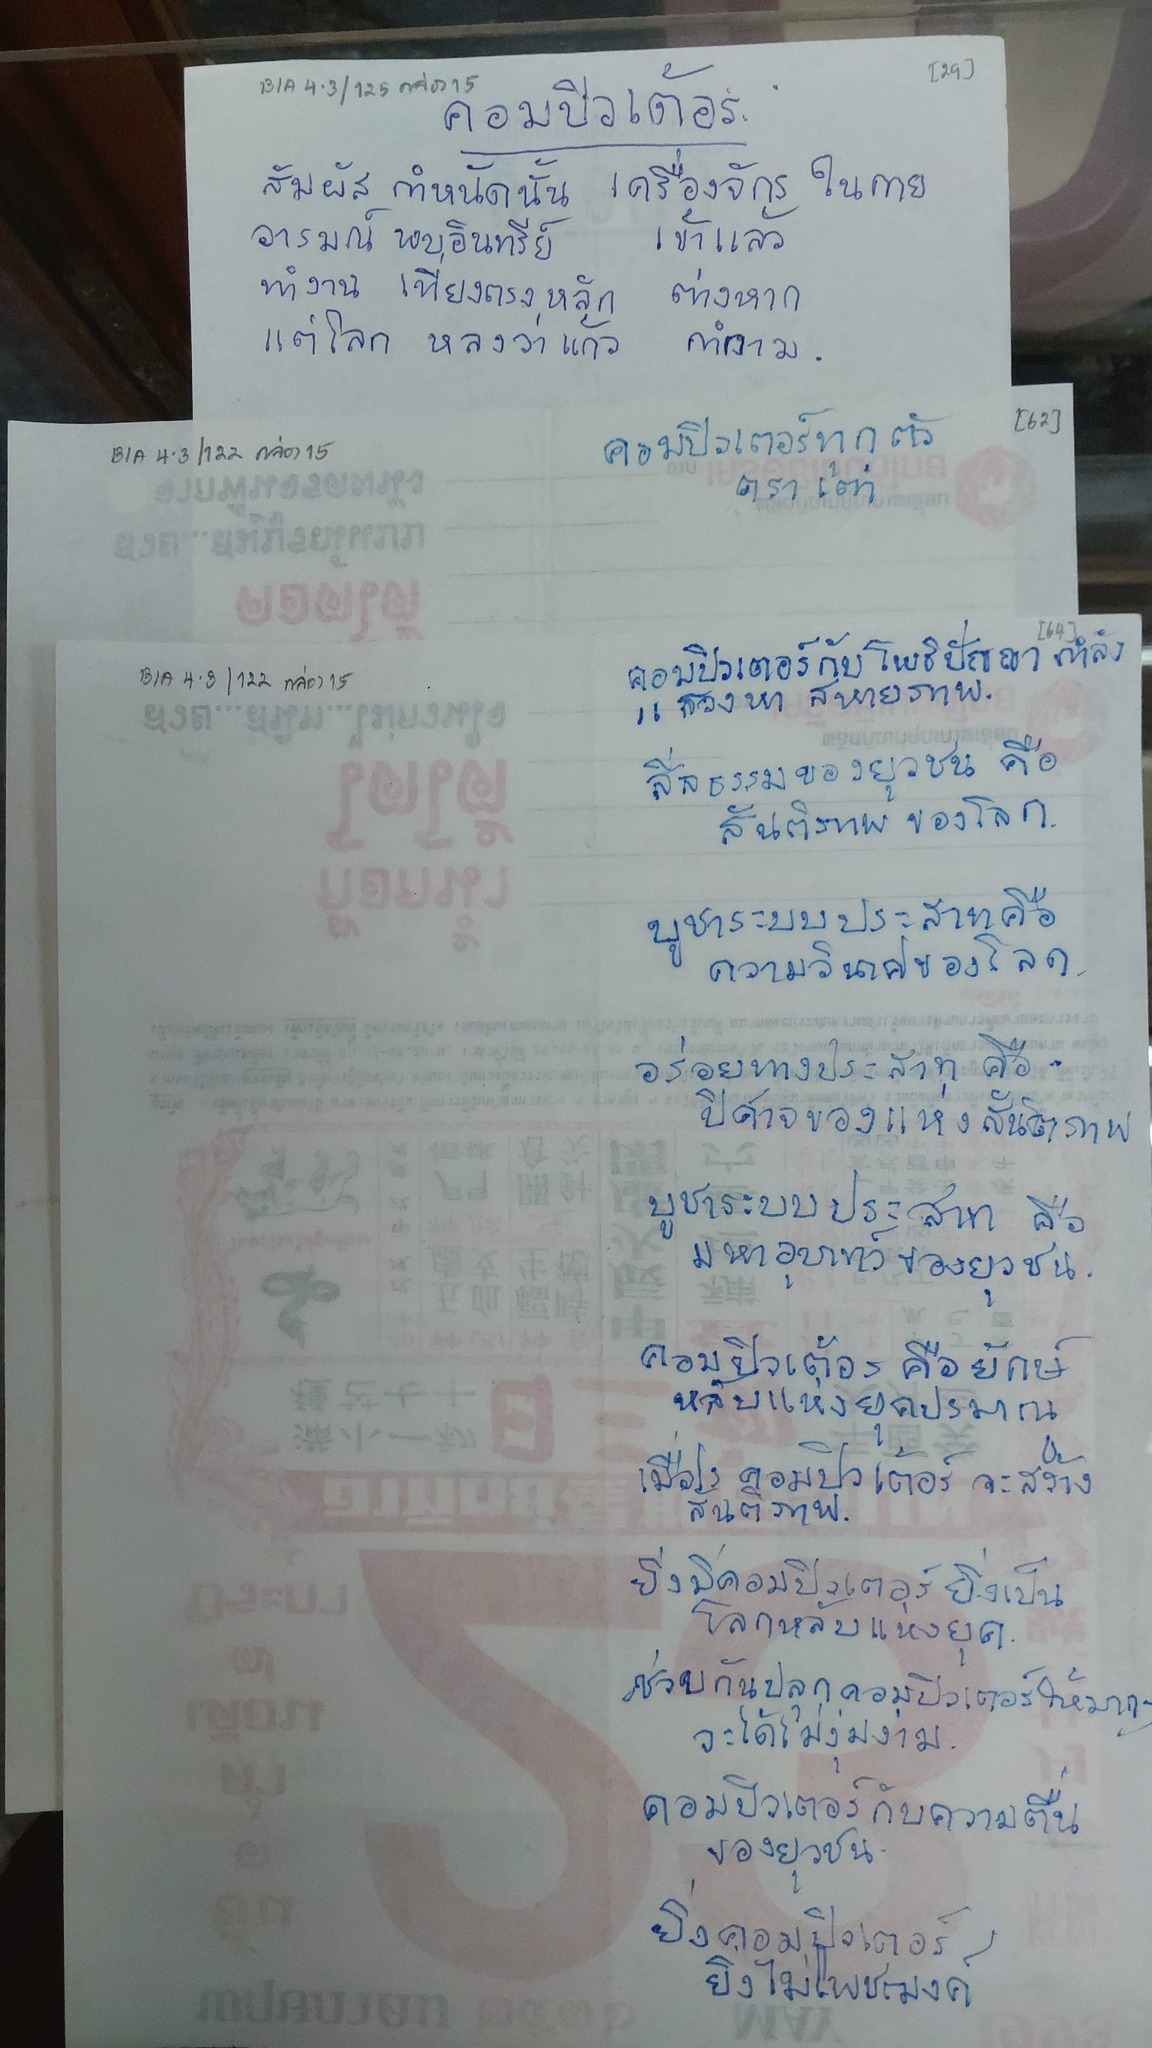 BIA 4.3/125 กล่อง 15
[29]
คอมปิวเต้อร์
สัมผัส กำหนัดนั้น เครื่องจักร ในกาย
อารมณ์ พบอินทรีย์ เข้าแล้ว
ทำงาน เที่ยงตรงหลัก ต่างหาก
แต่โลก หลงว่าแก้ว กำงาม.
BIA 4.3/122 กล่อง 15
[62]
คอมปิวเตอร์ทุกตัว
ตราเต่า
BIA 4.3/122 กล่อง 15
[64]
คอมปิวเตอร์กับโพธิปัญญา กำลัง
แสวงหา สหายภาพ.
สีลธรรมของยุวชน คือ
สันติภาพ ของโลก.
บูชาระบบประสาทคือ
ความวินาศของโลก.
อร่อยทางประสาท คือ
ปีศาจของแห่งสันติภาพ
บูชาระบบประสาท คือ
มหาอุบาทว์ของยุวชน.
คอมปิวเต้อร คือ ยักษ์
หลับแห่งยุคปรมาณู
เมื่อไร คอมปิวเต้อร์ จะสร้าง
สันติภาพ.
ยิ่งมีคอมปิวเตอร์ ยิ่งเป็น
โลกหลับแห่งยุค.
ช่วยกันปลุกคอมปิวเตอร์ให้มาก
จะได้ไม่งุ่มง่าม.
คอมปิวเตอร์กับความตื่น
ของยุวชน.
ยิ่งคอมปิวเตอร์
ยิ่งไม่ไพชฌงค์